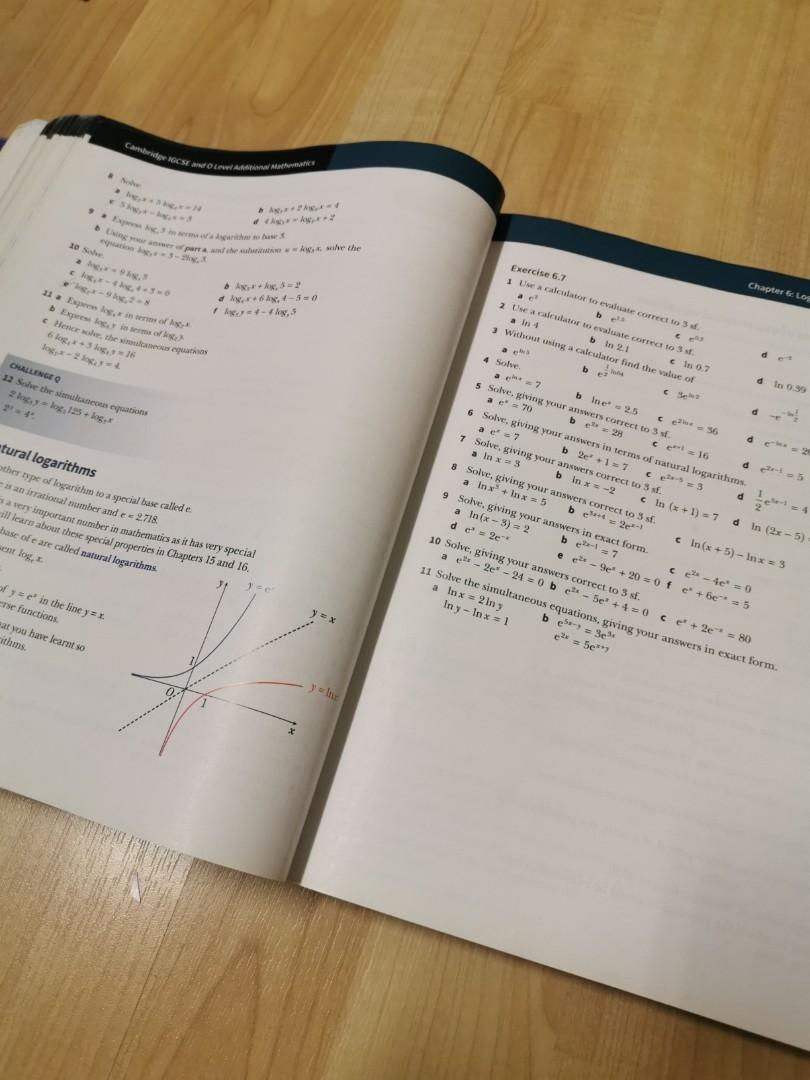 Cambridge IGCSE and O Level Additional Mathematics
8 Solve.
a log₂ x + 5 log₄ x = 14
b log₃ x + 2 log₉ x = 4
c 5 log₂ x − log₄ x = 3
d 4 log₃ x = log₉ x + 2
9 a Express logₓ 3 in terms of a logarithm to base 3.
b Using your answer of part a, and the substitution u = log₃ x, solve the
equation log₃ x = 3 − 2 logₓ 3.
10 Solve.
a log₃ x = 9 logₓ 3
b log₅ x + logₓ 5 = 2
c log₄ x − 4 logₓ 4 + 3 = 0
d log₄ x + 6 logₓ 4 − 5 = 0
e log₂ x − 9 logₓ 2 = 8
f log₅ y = 4 − 4 logᵧ 5
11 a Express log₄ x in terms of log₂ x.
b Express log₈ y in terms of log₂ y.
c Hence solve, the simultaneous equations
6 log₄ x + 3 log₈ y = 16
log₂ x − 2 log₄ y = 4.
CHALLENGE Q
12 Solve the simultaneous equations
2 log₃ y = log₅ 125 + log₃ x
2ʸ = 4ˣ.
tural logarithms
other type of logarithm to a special base called e.
e is an irrational number and e ≈ 2.718.
is a very important number in mathematics as it has very special
ill learn about these special properties in Chapters 15 and 16.
base of e are called natural logarithms.
sent logₑ x.
of y = eˣ in the line y = x.
erse functions.
at you have learnt so
ithms.
y
y = eˣ
y = x
1
O
1
y = ln x
x
Chapter 6: Log
Exercise 6.7
1 Use a calculator to evaluate correct to 3 sf.
a e²
b e¹·⁵
c e⁰·²
d e⁻²
2 Use a calculator to evaluate correct to 3 sf.
a ln 4
b ln 2.1
c ln 0.7
d ln 0.39
3 Without using a calculator find the value of
a e^(ln 5)
b e^(½ ln 64)
c 3e^(ln 2)
d −e^(−ln ½)
4 Solve.
a e^(ln x) = 7
b ln eˣ = 2.5
c e^(2 ln x) = 36
d e^(−ln x) = 20
5 Solve, giving your answers correct to 3 sf.
a eˣ = 70
b e²ˣ = 28
c eˣ⁺¹ = 16
d e²ˣ⁻¹ = 5
6 Solve, giving your answers in terms of natural logarithms.
a eˣ = 7
b 2eˣ + 1 = 7
c e²ˣ⁻⁵ = 3
d ½ e³ˣ⁻¹ = 4
7 Solve, giving your answers correct to 3 sf.
a ln x = 3
b ln x = −2
c ln (x + 1) = 7
d ln (2x − 5) =
8 Solve, giving your answers correct to 3 sf.
a ln x³ + ln x = 5
b e³ˣ⁺⁴ = 2eˣ⁻¹
c ln(x + 5) − ln x = 3
9 Solve, giving your answers in exact form.
a ln(x − 3) = 2
b e²ˣ⁻¹ = 7
c e²ˣ − 4eˣ = 0
d eˣ = 2e⁻ˣ
e e²ˣ − 9eˣ + 20 = 0
f eˣ + 6e⁻ˣ = 5
10 Solve, giving your answers correct to 3 sf.
a e²ˣ − 2eˣ − 24 = 0
b e²ˣ − 5eˣ + 4 = 0
c eˣ + 2e⁻ˣ = 80
11 Solve the simultaneous equations, giving your answers in exact form.
a ln x = 2 ln y
ln y − ln x = 1
b e⁵ˣ⁻ʸ = 3e³ˣ
e²ˣ = 5eˣ⁺ʸ